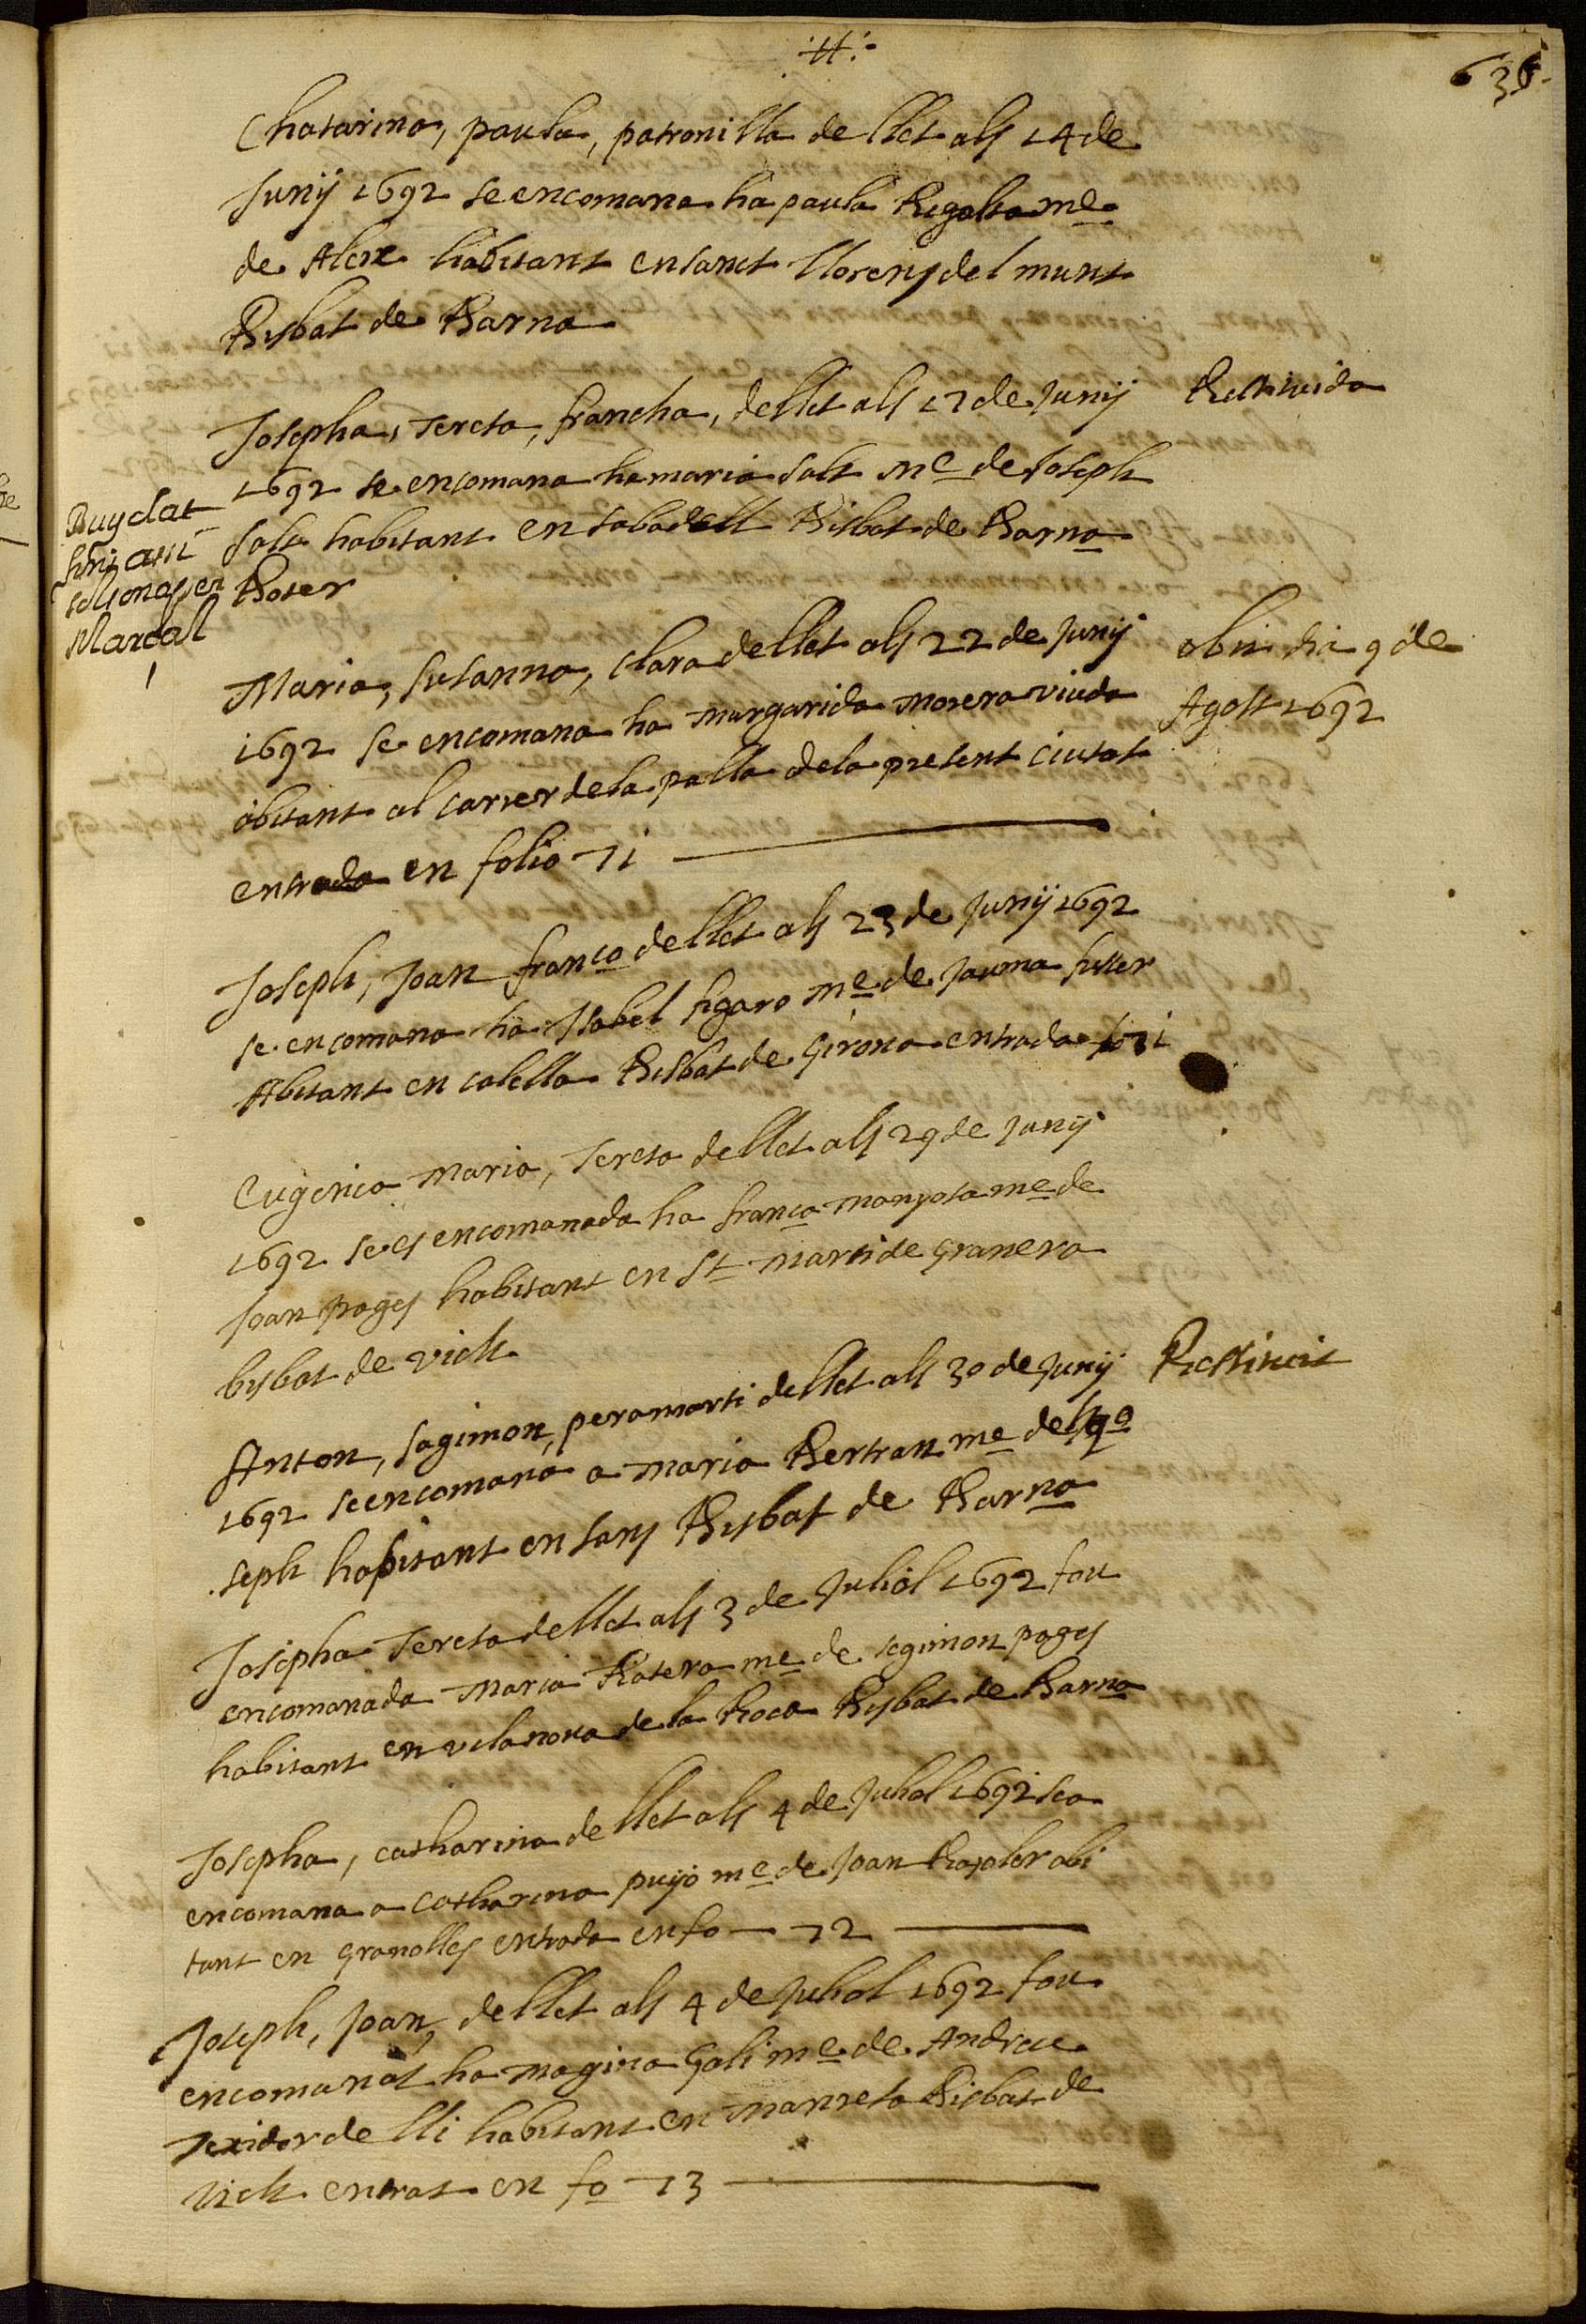 ·H·
636
Chatarina, paula, patronilla de llet als 14 de
Junÿ 1692 se encomana ha paula Rigalta me
de Alexe habitant en sanct Llorens del munt
Bisbat de Barna
Josepha, Teresa, francha, de llet als 17 de Junÿ
Restituida
1692 se encomana ha maria sala me de Joseph
sala habitant en sabadell Bisbat de Barna
Buydat
fins assi
Roser
Marçal
Maria, Susanna, clara de llet als 22 de Junÿ
obiit dia 9 de
1692 se encomana ha margarida morera viuda
Agost 1692
abitant al carrer de la palla de la present ciutat
entrada en folio 71
Joseph, Joan franco de llet als 23 de Junÿ 1692
se encomana ha Isabel figaro me de Jauma fuster
Abitant en calella Bisbat de Girona entrada fo 71
Eugenica Maria, Teresa de llet als 29 de Junÿ
1692 se es encomanada ha franca manyosa me de
Joan pages habitant en St marti de Granera
bisbat de vich
Anton, sagimon, pera marti de llet als 30 de Junÿ
Restituit
1692 se encomana a maria Bertran me de
seph habitant en sans Bisbat de Barna
Josepha Teresa de llet als 3 de Juliol 1692 fou
encomanada Maria Rosera me de segimon pages
habitant en vilanova de la Roca Bisbat de Barna
Josepha, catharina de llet als 4 de Juliol 1692 sea
encomana a catharina pujo me de Joan Rajoler abi
tant en Granolles entrada en fo 72
Joseph, Joan, de llet als 4 de Juliol 1692 fou
encomanat ha magina Gali me de Andreu
Texidor de lli habitant en manresa Bisbat de
vich entrat en fo 73